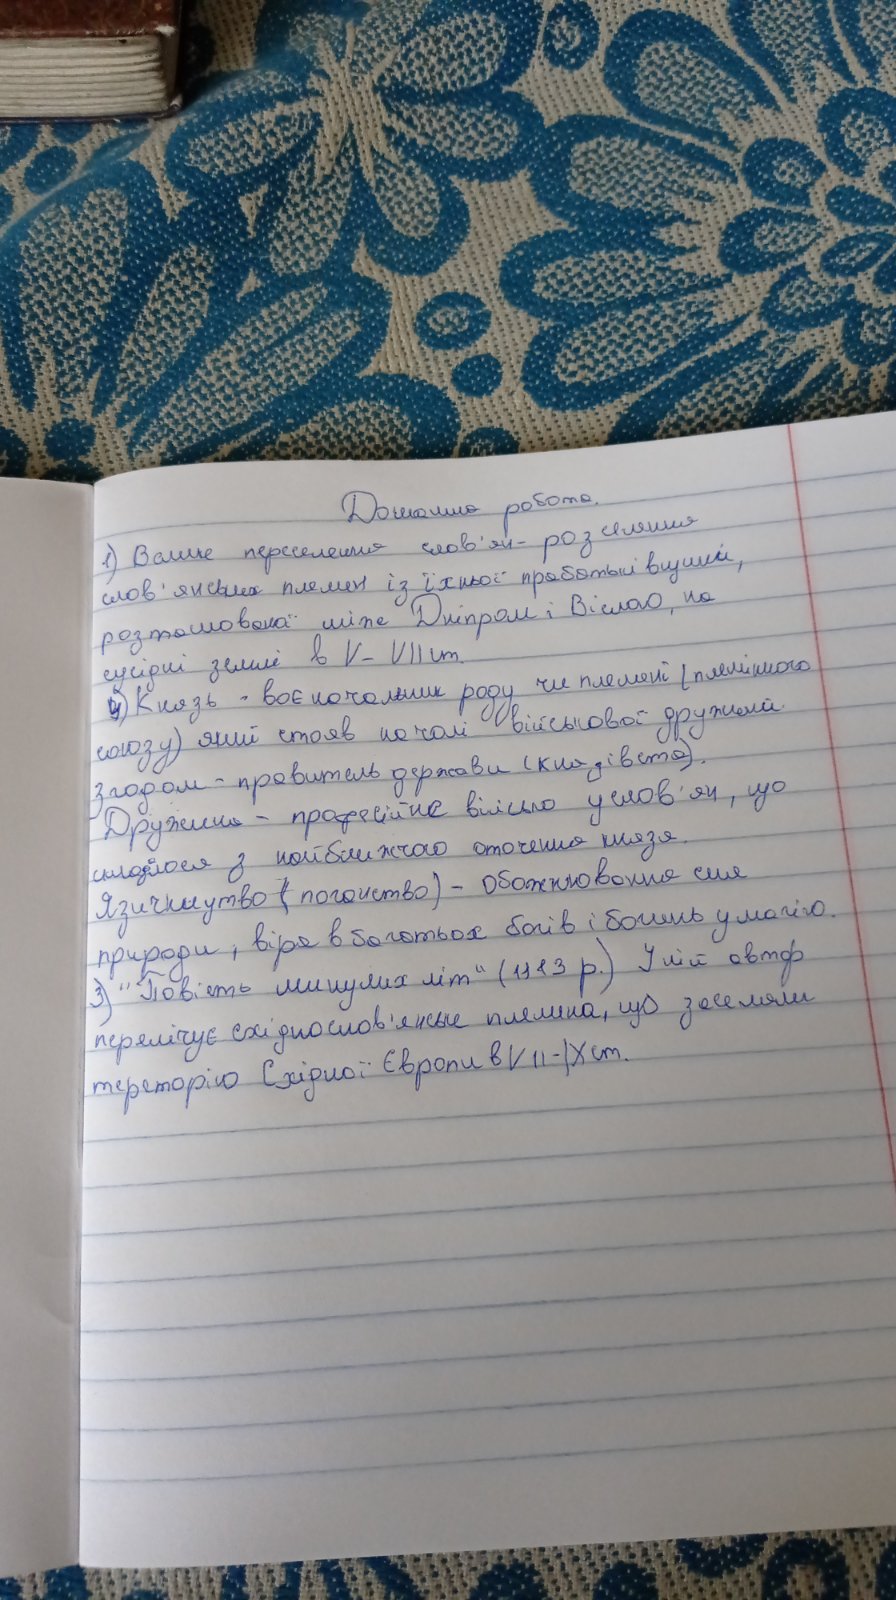 Домашня робота.
1) Велике переселення слов'ян - розселення
слов'янських племен із їхньої прабатьківщини,
розташованої між Дніпром і Віслою, на
сусідні землі в V-VII ст.
Князь - воєначальник роду чи племені (племінного
союзу) який стояв на чолі військової дружини
згодом - правитель держави (князівста).
Дружина - професійне військо у слов'ян, що
складлося з найближчого оточення князя.
Язичництво (поганство) - обожнювання сил
природи, віра в багатьох богів і божень у магію.
3) "Повість минулих літ" (1113 р.) У ній автор
перелічує східнослов'янські племена, що заселяли
територію Східної Європи в VII-IX ст.